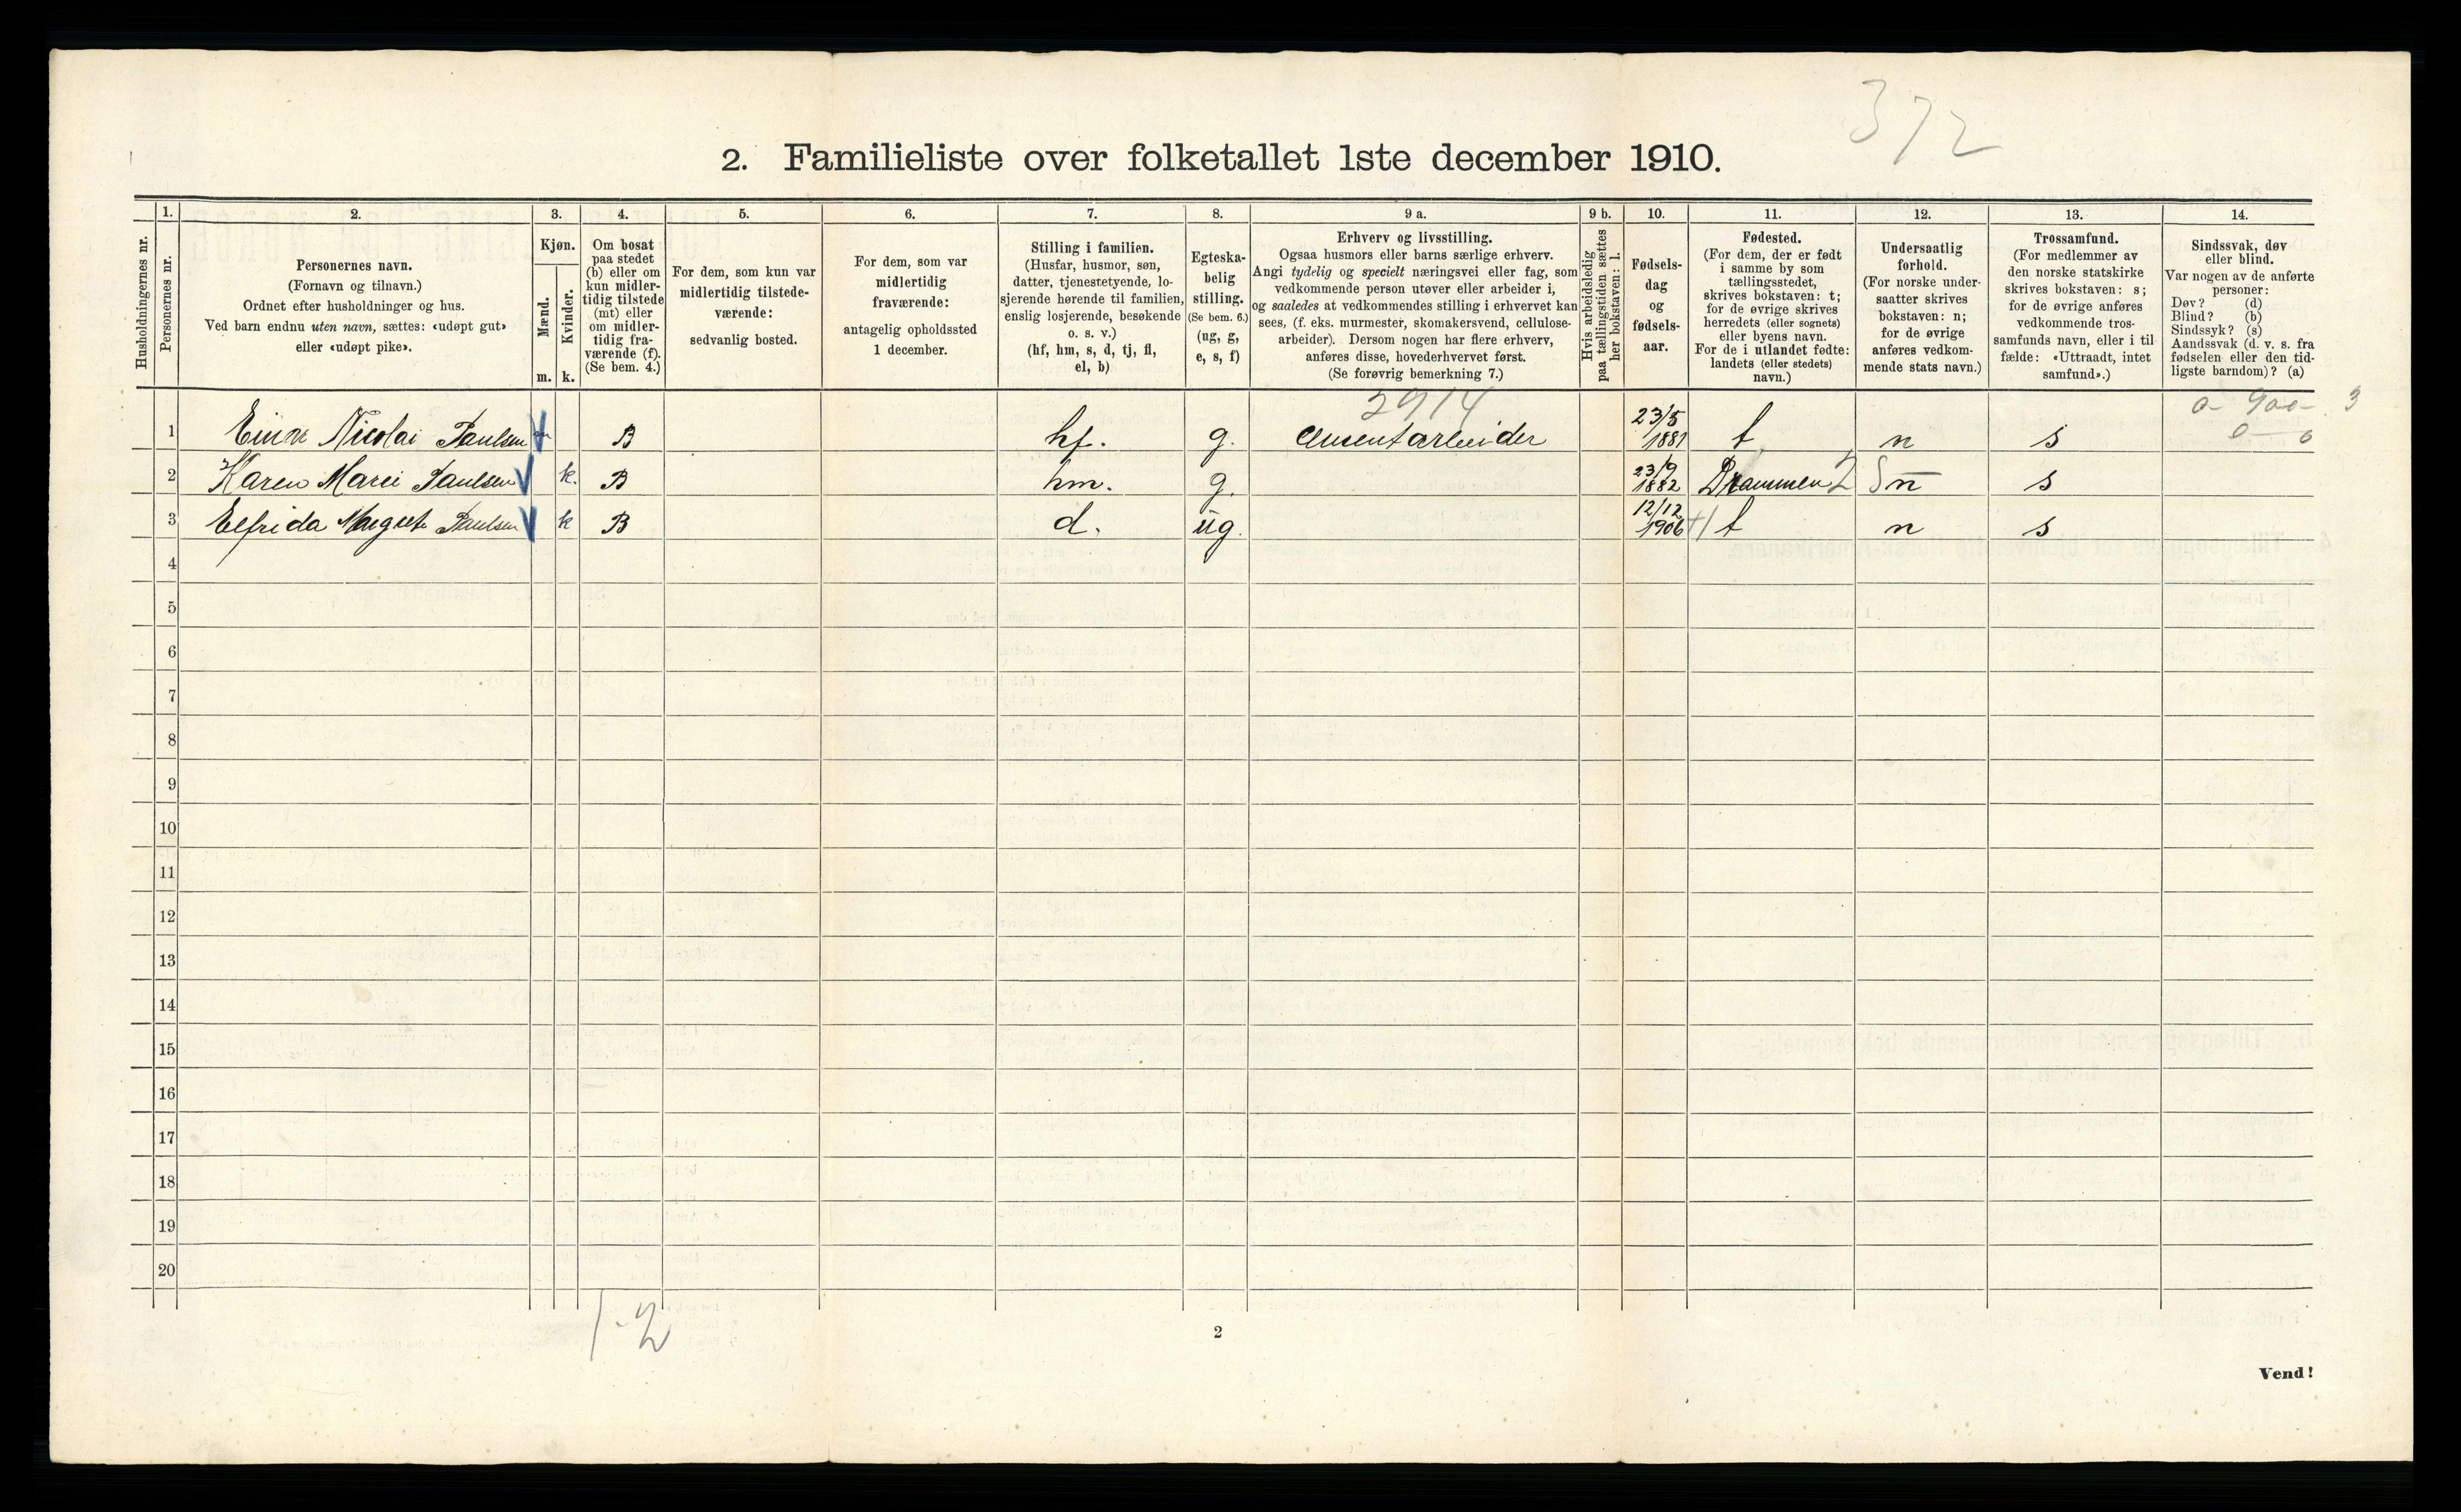 372
2. Familieliste over folketallet 1ste december 1910.
Husholdningernes nr.
1.
Personernes nr.
2.
Personernes navn.
(Fornavn og tilnavn.)
Ordnet efter husholdninger og hus.
Ved barn endnu uten navn, sættes: «udøpt gut»
eller «udøpt pike».
3.
Kjøn.
Mænd.
Kvinder.
m. k.
4.
Om bosat
paa stedet
(b) eller om
kun midler-
tidig tilstede
(mt) eller
om midler-
tidig fra-
værende (f).
(Se bem. 4.)
5.
For dem, som kun var
midlertidig tilstede-
værende:
sedvanlig bosted.
6.
For dem, som var
midlertidig
fraværende:
antagelig opholdssted
1 december.
7.
Stilling i familien.
(Husfar, husmor, søn,
datter, tjenestetyende, lo-
sjerende hørende til familien,
enslig losjerende, besøkende
o. s. v.)
(hf, hm, s, d, tj, fl,
el, b)
8.
Egteska-
belig
stilling.
(Se bem. 6.)
(ug, g,
e, s, f)
9 a.
Erhverv og livsstilling.
Ogsaa husmors eller barns særlige erhverv.
Angi tydelig og specielt næringsvei eller fag, som
vedkommende person utøver eller arbeider i,
og saaledes at vedkommendes stilling i erhvervet kan
sees, (f. eks. murmester, skomakersvend, cellulose-
arbeider). Dersom nogen har flere erhverv,
anføres disse, hovederhvervet først.
(Se forøvrig bemerkning 7.)
9 b.
Hvis arbeidsledig
paa tællingstiden sættes
her bokstaven: l.
10.
Fødsels-
dag
og
fødsels-
aar.
11.
Fødested.
(For dem, der er født
i samme by som
tællingsstedet,
skrives bokstaven: t;
for de øvrige skrives
herredets (eller sognets)
eller byens navn.
For de i utlandet fødte:
landets (eller stedets)
navn.)
12.
Undersaatlig
forhold.
(For norske under-
saatter skrives
bokstaven: n;
for de øvrige
anføres vedkom-
mende stats navn.)
13.
Trossamfund.
(For medlemmer av
den norske statskirke
skrives bokstaven: s;
for de øvrige anføres
vedkommende tros-
samfunds navn, eller i til-
fælde: «Uttraadt, intet
samfund».)
14.
Sindssvak, døv
eller blind.
Var nogen av de anførte
personer:
Døv? (d)
Blind? (b)
Sindssyk? (s)
Aandssvak (d. v. s. fra
fødselen eller den tid-
ligste barndom)? (a)
2914
0- 900- 3
0 - 0
1 Einar Nicolai Paulsen m B hf. g. Cementarbeider 23/5 1881 t n s
2 Karen Marei Paulsen k. B hm. g. 23/9 1882 Drammen n s
3 Elfrida Margrete Paulsen k B d. ug. 12/12 1906 t n s
4
5
6
7
8
9
10
11
12
13
14
15
16
17
18
19
20
1-2
2
Vend!